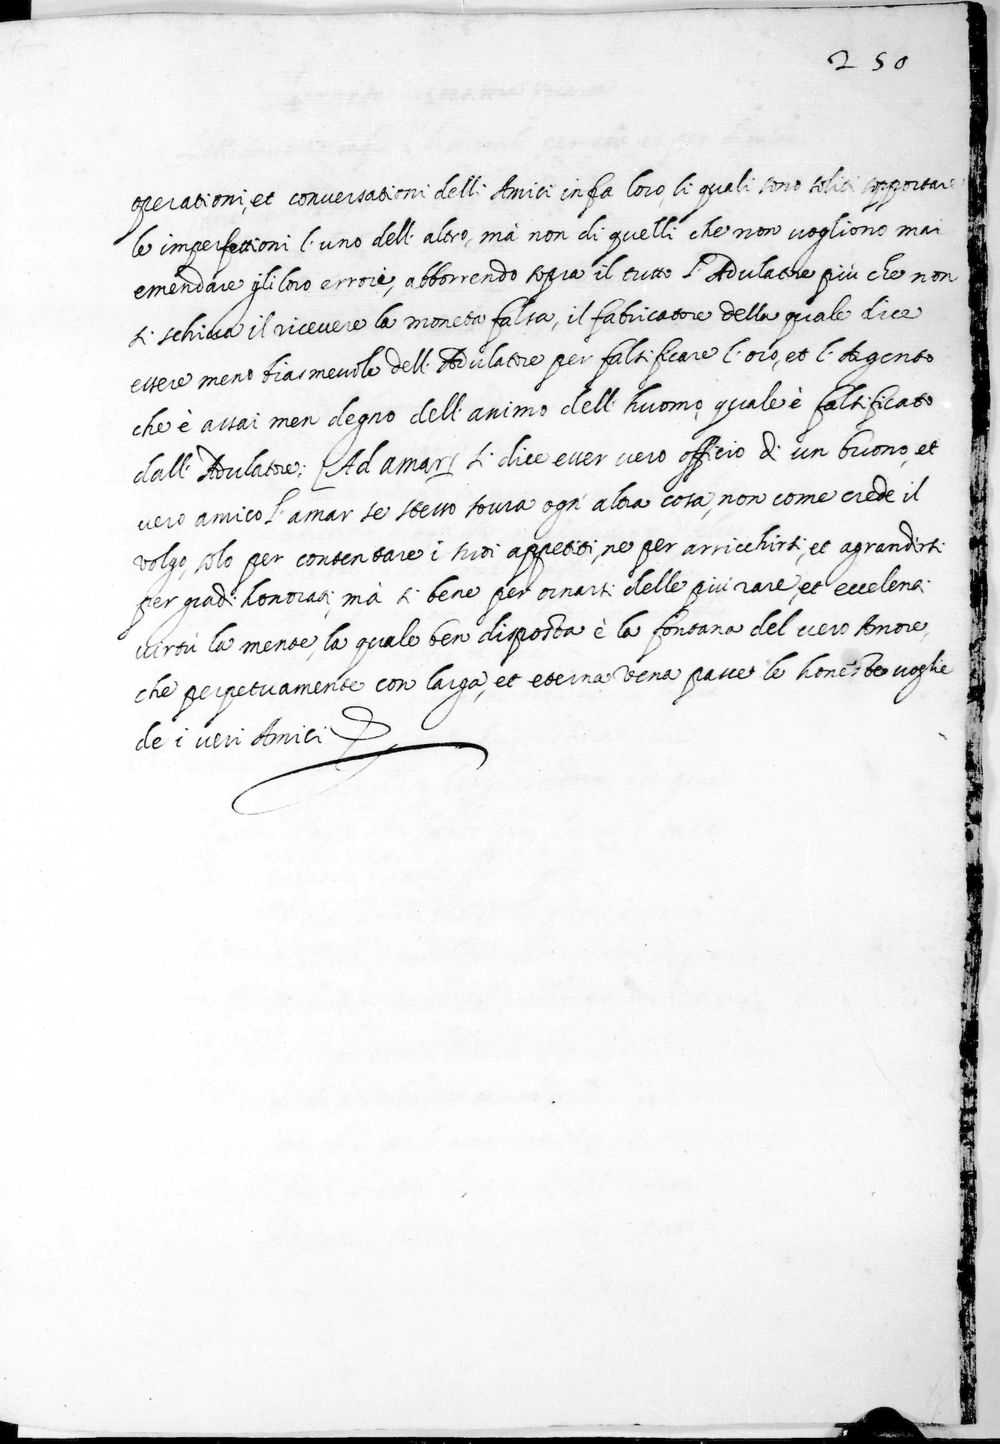 250
operationi, et conversationi delli Amici infra loro, li quali sono soliti sopportare
le imperfettioni l'uno dell'altro, mà non di quelli che non vogliono mai
emendare gli loro errori, abborrendo sopra il tutto l'Adulatore più che non
si schiva il ricevere la moneta falsa, il fabricatore della quale dice
essere meno biasmevole dell'Adulatore per falsificare l'oro, et l'Argento
che è assai men degno dell'animo dell'huomo, quale è falsificato
dall'Adulatore; [Ad amar] si dice esser vero officio di un buono, et
vero amico l'amar se stesso sovra ogni altra cosa, non come crede il
volgo, solo per contentare i suoi appetiti, ne per arricchirsi, et agrandirsi
per gradi honorati, mà si bene per ornarsi delle più rare, et eccelenti
virtù la mente, la quale ben disposta è la fontana del vero Amore,
che perpetuamente con larga, et eterna vena pasce le honeste voglie
de i veri Amici